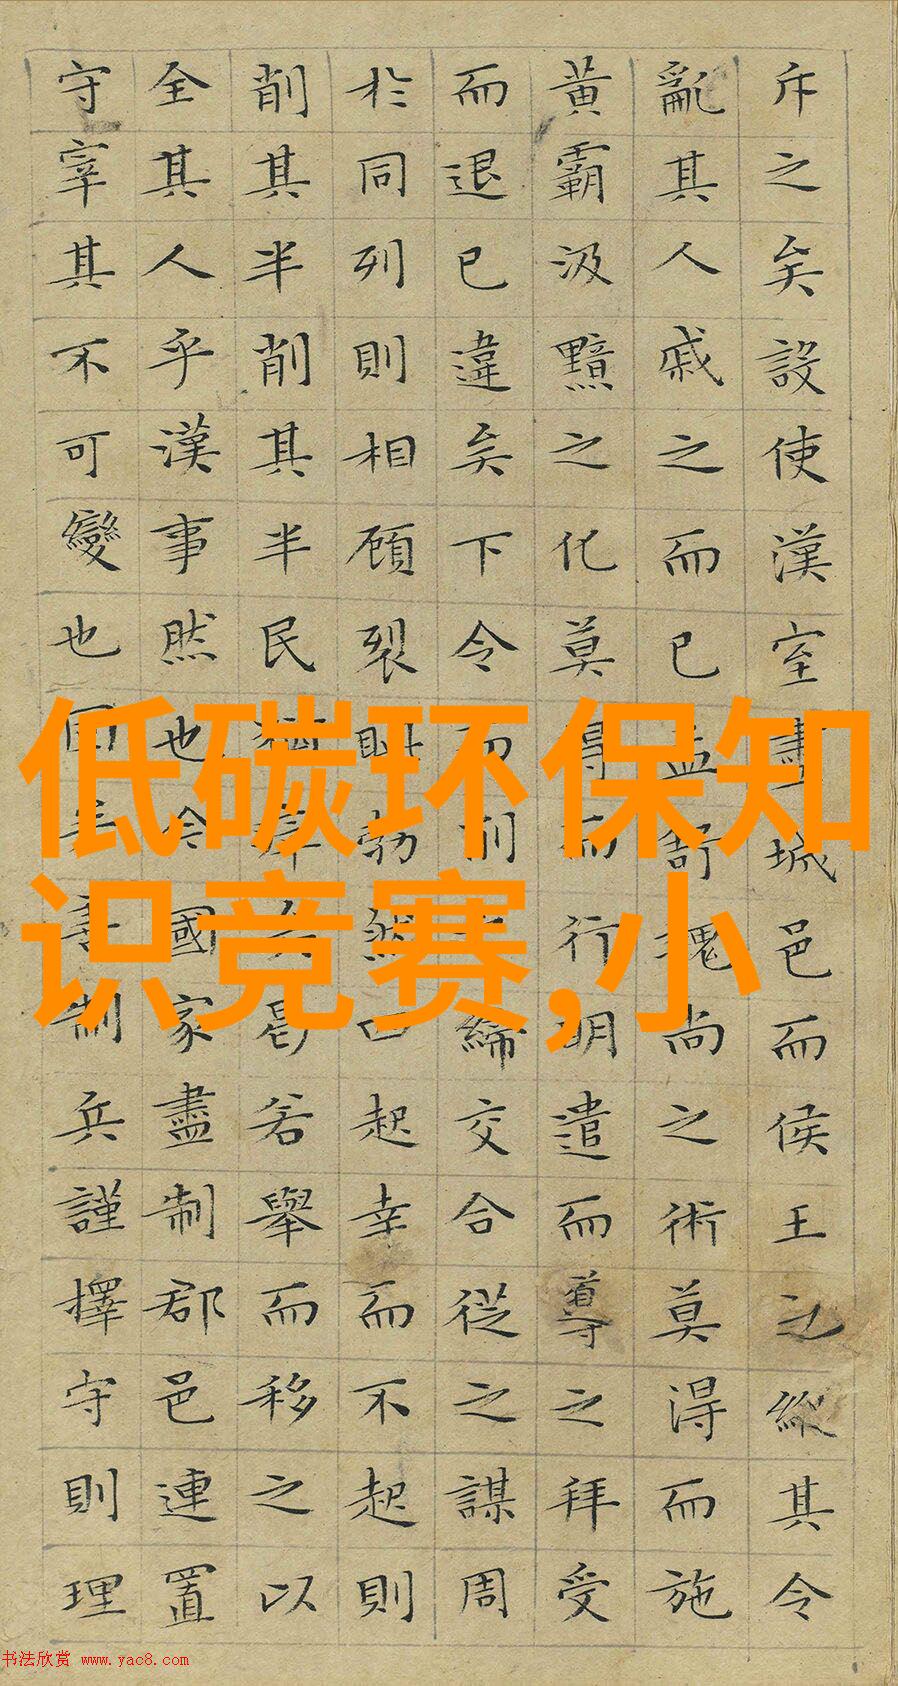 斥之矣設使漢室盡城邑而侯王之縱其令
亂其人戚之而已孟舒魏尚之術莫得而施
黃霸汲黯之化莫得而行明遣而導之拜受
而退已違矣下令而削締交合從之謀周
於同列則相顧裂眦勃然而起幸而不起則
削其半削其半民猶瘁矣曷若舉而移之以
全其人乎漢事然也今國家盡制郡邑連置
守宰其不可變也固善制兵謹擇守則理
低碳环保知
识竞赛,小
书法欣赏 www.yac8.com